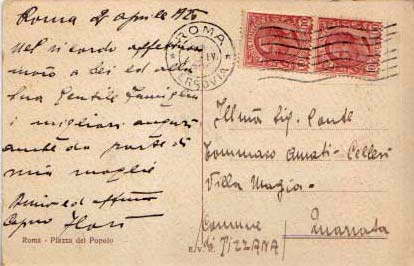 Roma 2 aprile 1925
Nel ricordo affettuoso
a Lei ed alla
Sua Gentile Famiglia
i migliori auguri
anche da parte di
mia moglie
ROMA
FERROVIA
Illmo Sig. Conte
Tommaso Amati-Cellesi
Villa Magia-
Quarrata
Comune
di PIZZANA)
Roma - Piazza del Popolo